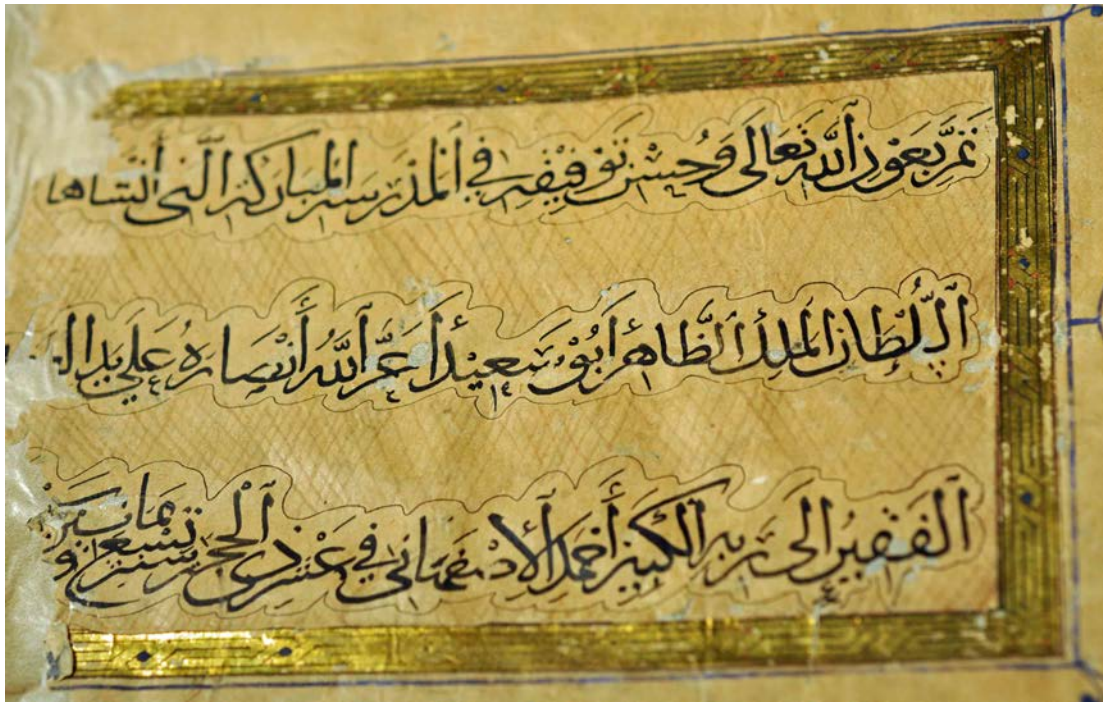 تَمَّ بعَوْنِ ٱللّٰه تعَالَى وَحُسْنِ تَوْفِيْقِهِ فِي ٱلمَدْرَسَةِ ٱلمُبَارَكَةِ ٱلَّتى أَنْشاها
ٱلسُّلْطَان ٱلمَلِك ٱلظَّاهِر أَبُوْ سَعِيْد أَعَزَّ ٱللّٰهُ أَنْصَارَهُ عَلَى يَد
ٱلفَقِيْرِ إِلَى رَبِّهِ ٱلكَبِيْر أَحْمَد ٱلإِصْفَهَانى فِي عَشْر ذِى ٱلْحِجَّة سنة تِسْعٍ و ثمانين